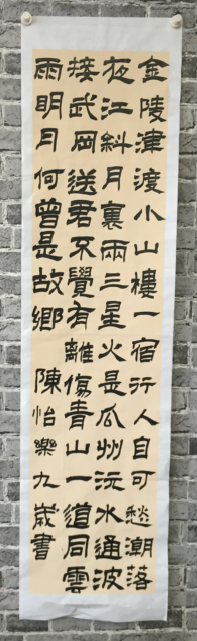 金陵津渡小山樓一宿行人自可愁潮落
夜江斜月裏兩三星火是瓜州沅水通波
接武岡送君不覺有離傷青山一道同雲
雨明月何曾是故鄉 陳怡樂九歲書